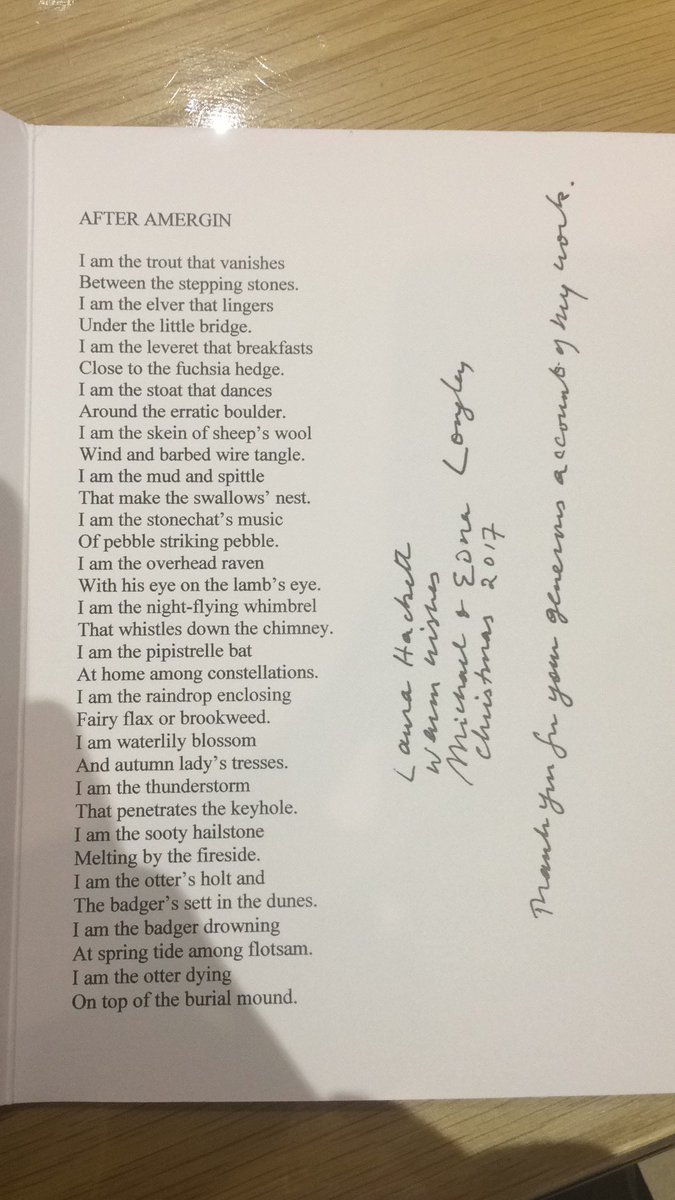 AFTER AMERGIN
I am the trout that vanishes
Between the stepping stones.
I am the elver that lingers
Under the little bridge.
I am the leveret that breakfasts
Close to the fuchsia hedge.
I am the stoat that dances
Around the erratic boulder.
I am the skein of sheep's wool
Wind and barbed wire tangle.
I am the mud and spittle
That make the swallows' nest.
I am the stonechat's music
Of pebble striking pebble.
I am the overhead raven
With his eye on the lamb's eye.
I am the night-flying whimbrel
That whistles down the chimney.
I am the pipistrelle bat
At home among constellations.
I am the raindrop enclosing
Fairy flax or brookweed.
I am waterlily blossom
And autumn lady's tresses.
I am the thunderstorm
That penetrates the keyhole.
I am the sooty hailstone
Melting by the fireside.
I am the otter's holt and
The badger's sett in the dunes.
I am the badger drowning
At spring tide among flotsam.
I am the otter dying
On top of the burial mound.
Laura Hackett
Warm wishes
Michael & Edna Longley
Christmas 2017
Thank you for your generous account of my work.